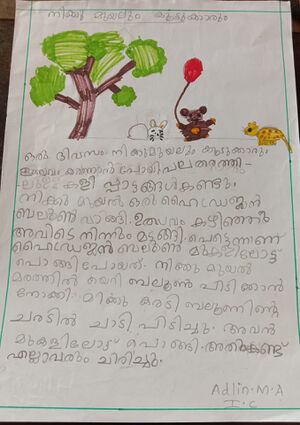 നിക്കു മുയലും കൂട്ടുകാരും
ഒരു ദിവസം നിക്കുമുയലും കൂട്ടുകാരും
ഉത്സവം കാണാൻ പോയി പലതരത്തി
-ലുള്ള കളി പ്പാട്ടങ്ങൾകണ്ടും.
നിക്കു മുയൽ ഒരു ഹൈഡ്രജൻ
ബലൂൺ വാങ്ങി. ഉത്സവം കഴിഞ്ഞ്
അവിടെ നിന്നും മടങ്ങി. പെട്ടെന്നാണ്
ഹൈഡ്രജൻ ബലൂൺ മുകളിലോട്ട്
പൊ ങ്ങി പോയത്. നിക്കു മുയൽ
മരത്തിൽ കയറി ബലൂൺ പിടിക്കാൻ
നോക്കി. മിക്കു കരടി ബലൂണിന്റെ
ചരടിൽ ചാടി പിടിച്ചു. അവൻ
മുകളിലോട്ട് പൊങ്ങി. അത്കണ്ട്
എല്ലാവരും ചിരിച്ചു.
Adlin.M.A
I.C